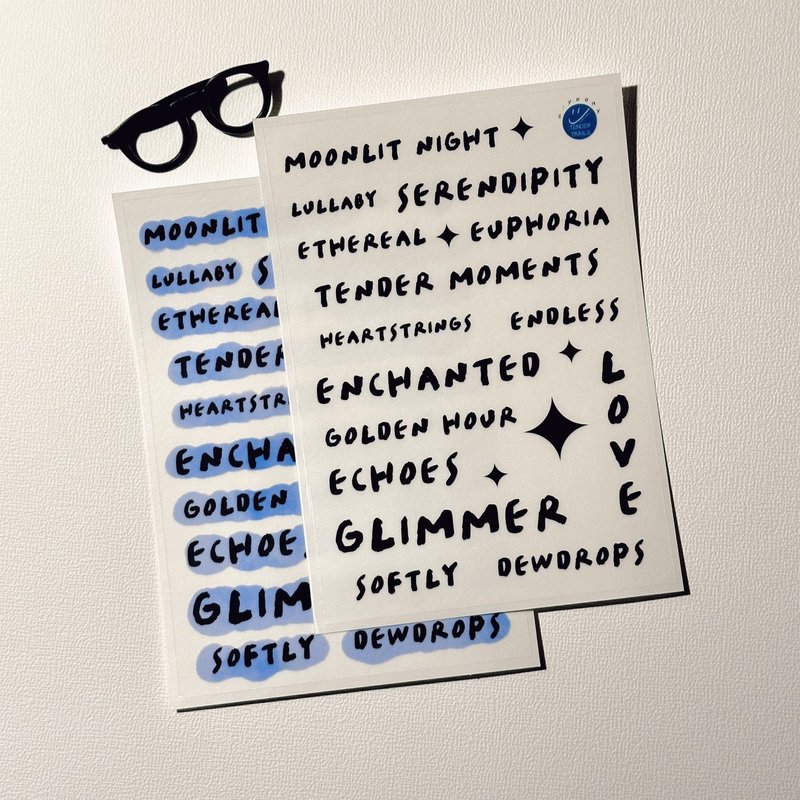 MOONLIT NIGHT
LULLABY SERENDIPITY
ETHEREAL EUPHORIA
TENDER MOMENTS
HEARTSTRINGS ENDLESS
ENCHANTED
LOVE
GOLDEN HOUR
ECHOES
GLIMMER
SOFTLY DEWDROPS
TENDER
TRAILS
MOONLIT
LULLABY S
ETHEREAL
TENDER
HEARTSTR
ENCHA
GOLDEN
ECHOE
GLIM
SOFTLY DEWDROPS